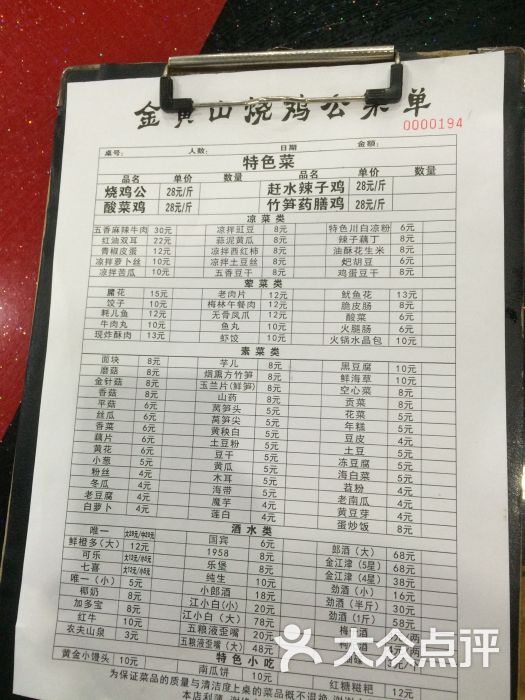 金黄山烧鸡公菜单
0000194
桌号： 人数： 日期 金额：
特色菜
品名 单价 数量 品名 单价 数量
烧鸡公 28元/斤 赶水辣子鸡 28元/斤
酸菜鸡 28元/斤 竹笋药膳鸡 28元/斤
凉菜类
五香麻辣牛肉 30元 凉拌豇豆 8元 特色川白凉粉 6元
红油双耳 22元 蒜泥黄瓜 8元 辣子藕丁 8元
青椒皮蛋 12元 凉拌西红柿 8元 油酥花生米 8元
凉拌萝卜丝 10元 凉拌土豆丝 8元 𤆵胡豆 6元
凉拌苦瓜 10元 五香豆干 8元 鸡蛋豆干 8元
荤菜类
腰花 15元 老肉片 12元 鱿鱼花 13元
饺子 10元 梅林午餐肉 10元 脆皮肠 8元
耗儿鱼 12元 无骨凤爪 12元 酸菜 6元
牛肉丸 10元 鱼丸 10元 火腿肠 6元
现炸酥肉 13元 虾饺 10元 火锅水晶包 10元
素菜类
面块 8元 芋儿 8元 黑豆腐 10元
蘑菇 8元 烟熏方竹笋 8元 鲜海草 10元
金针菇 8元 玉兰片(鲜笋) 8元 空心菜 8元
香菇 8元 山药 8元 贡菜 8元
平菇 6元 莴笋头 5元 花菜 5元
丝瓜 6元 莴笋尖 5元 年糕 5元
香菜 6元 黄秧白 5元 豆皮 4元
藕片 6元 土豆粉 5元 土豆 4元
黄花 6元 豆干 5元 冻豆腐 4元
小葱 5元 黄瓜 5元 海白菜 4元
粉丝 4元 木耳 5元 苕粉 4元
冬瓜 4元 海带 5元 老南瓜 4元
老豆腐 4元 魔芋 4元 黄豆芽 4元
白萝卜 4元 莲白 4元 蛋炒饭 8元
酒水类
唯一 国宾 6元 郎酒（大） 68元
鲜橙多(大) 12元 1958 8元 金江津（5星） 68元
可乐 乐堡 8元 金江津（4星） 38元
七喜 纯生 10元 劲酒（小） 16元
唯一（小） 5元 小郎酒 18元 劲酒（半斤） 30元
椰奶 8元 江小白(小) 20元 劲酒（1斤） 58元
加多宝 8元 江小白（大） 78元
红牛 10元 五粮液歪嘴 20元
农夫山泉 3元 五粮液歪嘴(大) 48元
特色小吃
黄金小馒头 10元 南瓜饼 10元 红糖糍粑 12元
为保证菜品的质量与清洁度上桌的菜品概不退换
本店利薄
大众点评